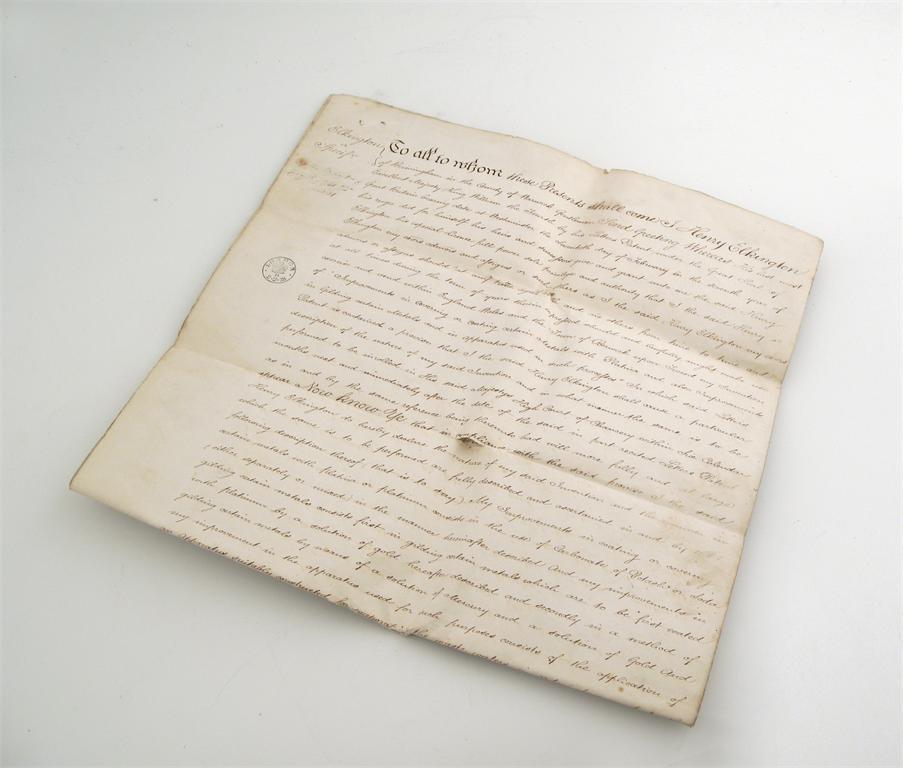 Elkington
Specifn
To all to whom these Presents shall come I Henry Elkington
of Birmingham in the County of Warwick Gentleman Send Greeting Whereas His most
Excellent Majesty King William the Fourth by his Letters Patent under the Great Seal of
Great Britain bearing date at Westminster the day of February in the seventh year of
his reign did for himself his heirs and successors give and grant unto me the said Henry
Elkington his special licence full power sole privilege and authority that I the said Henry
Elkington my exors admors and assigns or such others as I the said Henry Elkington my exors
admors or assigns should at any time agree with and no others from time to time and
at all times during the term of years therein expressed should and lawfully might make use
exercise and vend within England Wales and the Town of Berwick upon Tweed my Invention
of Improvements in covering or coating certain metals with Platina and also Improvements
in Gilding certain Metals and in apparatus used in such processes In which said Letters
Patent is contained a proviso that I the said Henry Elkington shall cause a particular
description of the nature of my said Invention and in what manner the same is to be
performed to be inrolled in His said Majestys High Court of Chancery within six Calendar
months next and immediately after the date of the said in part recited Letters Patent
as in and by the same reference being thereunto had will more fully and at large
appear Now Know Ye that in compliance with the said proviso I the said
Henry Elkington do hereby declare the nature of my said Invention and the manner in
which the same is to be performed are fully described and ascertained in and by the
following description thereof (that is to say) My Improvements in coating or covering
certain metals with Platina or platinum consist in the use of Carbonates of Potash or Soda
either separately or mixed in the manner hereinafter described And my improvements in
gilding certain metals consists first in gilding certain metals which are to be first coated
with platinum by a solution of gold hereafter described and secondly in a method of
gilding certain metals by means of a solution of Mercury and a solution of Gold And
my improvement in the apparatus used for such purposes consists of the application of